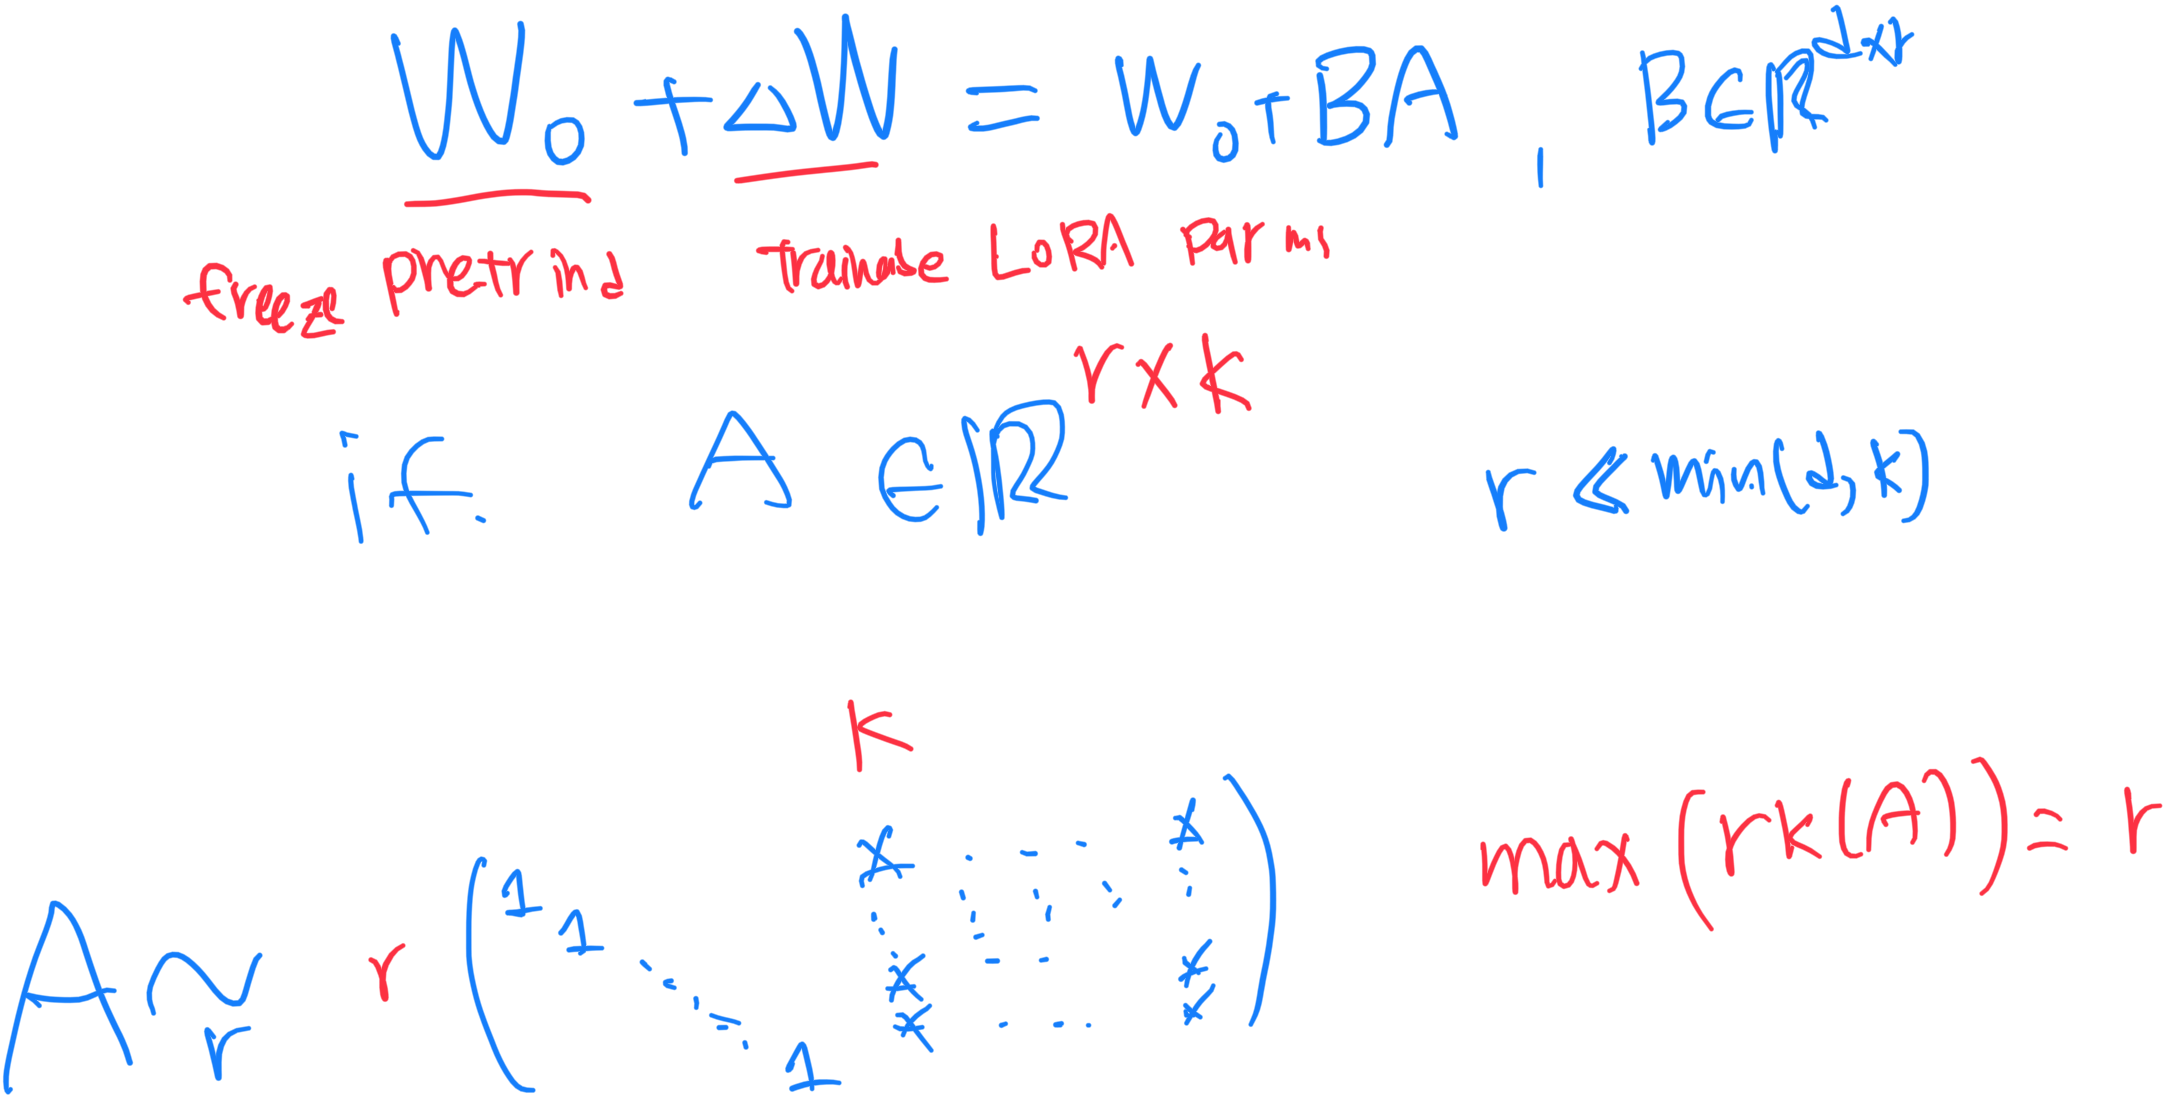 W₀ + ΔW = W₀ + BA , B ∈ ℝ^{d×r}
freeze pretrind trainable LoRA parms
if A ∈ ℝ^{r×k} r ≪ min(d,k)
k
A ~_r r ( 1 1 ... 1 * ... * ) max(rk(A)) = r